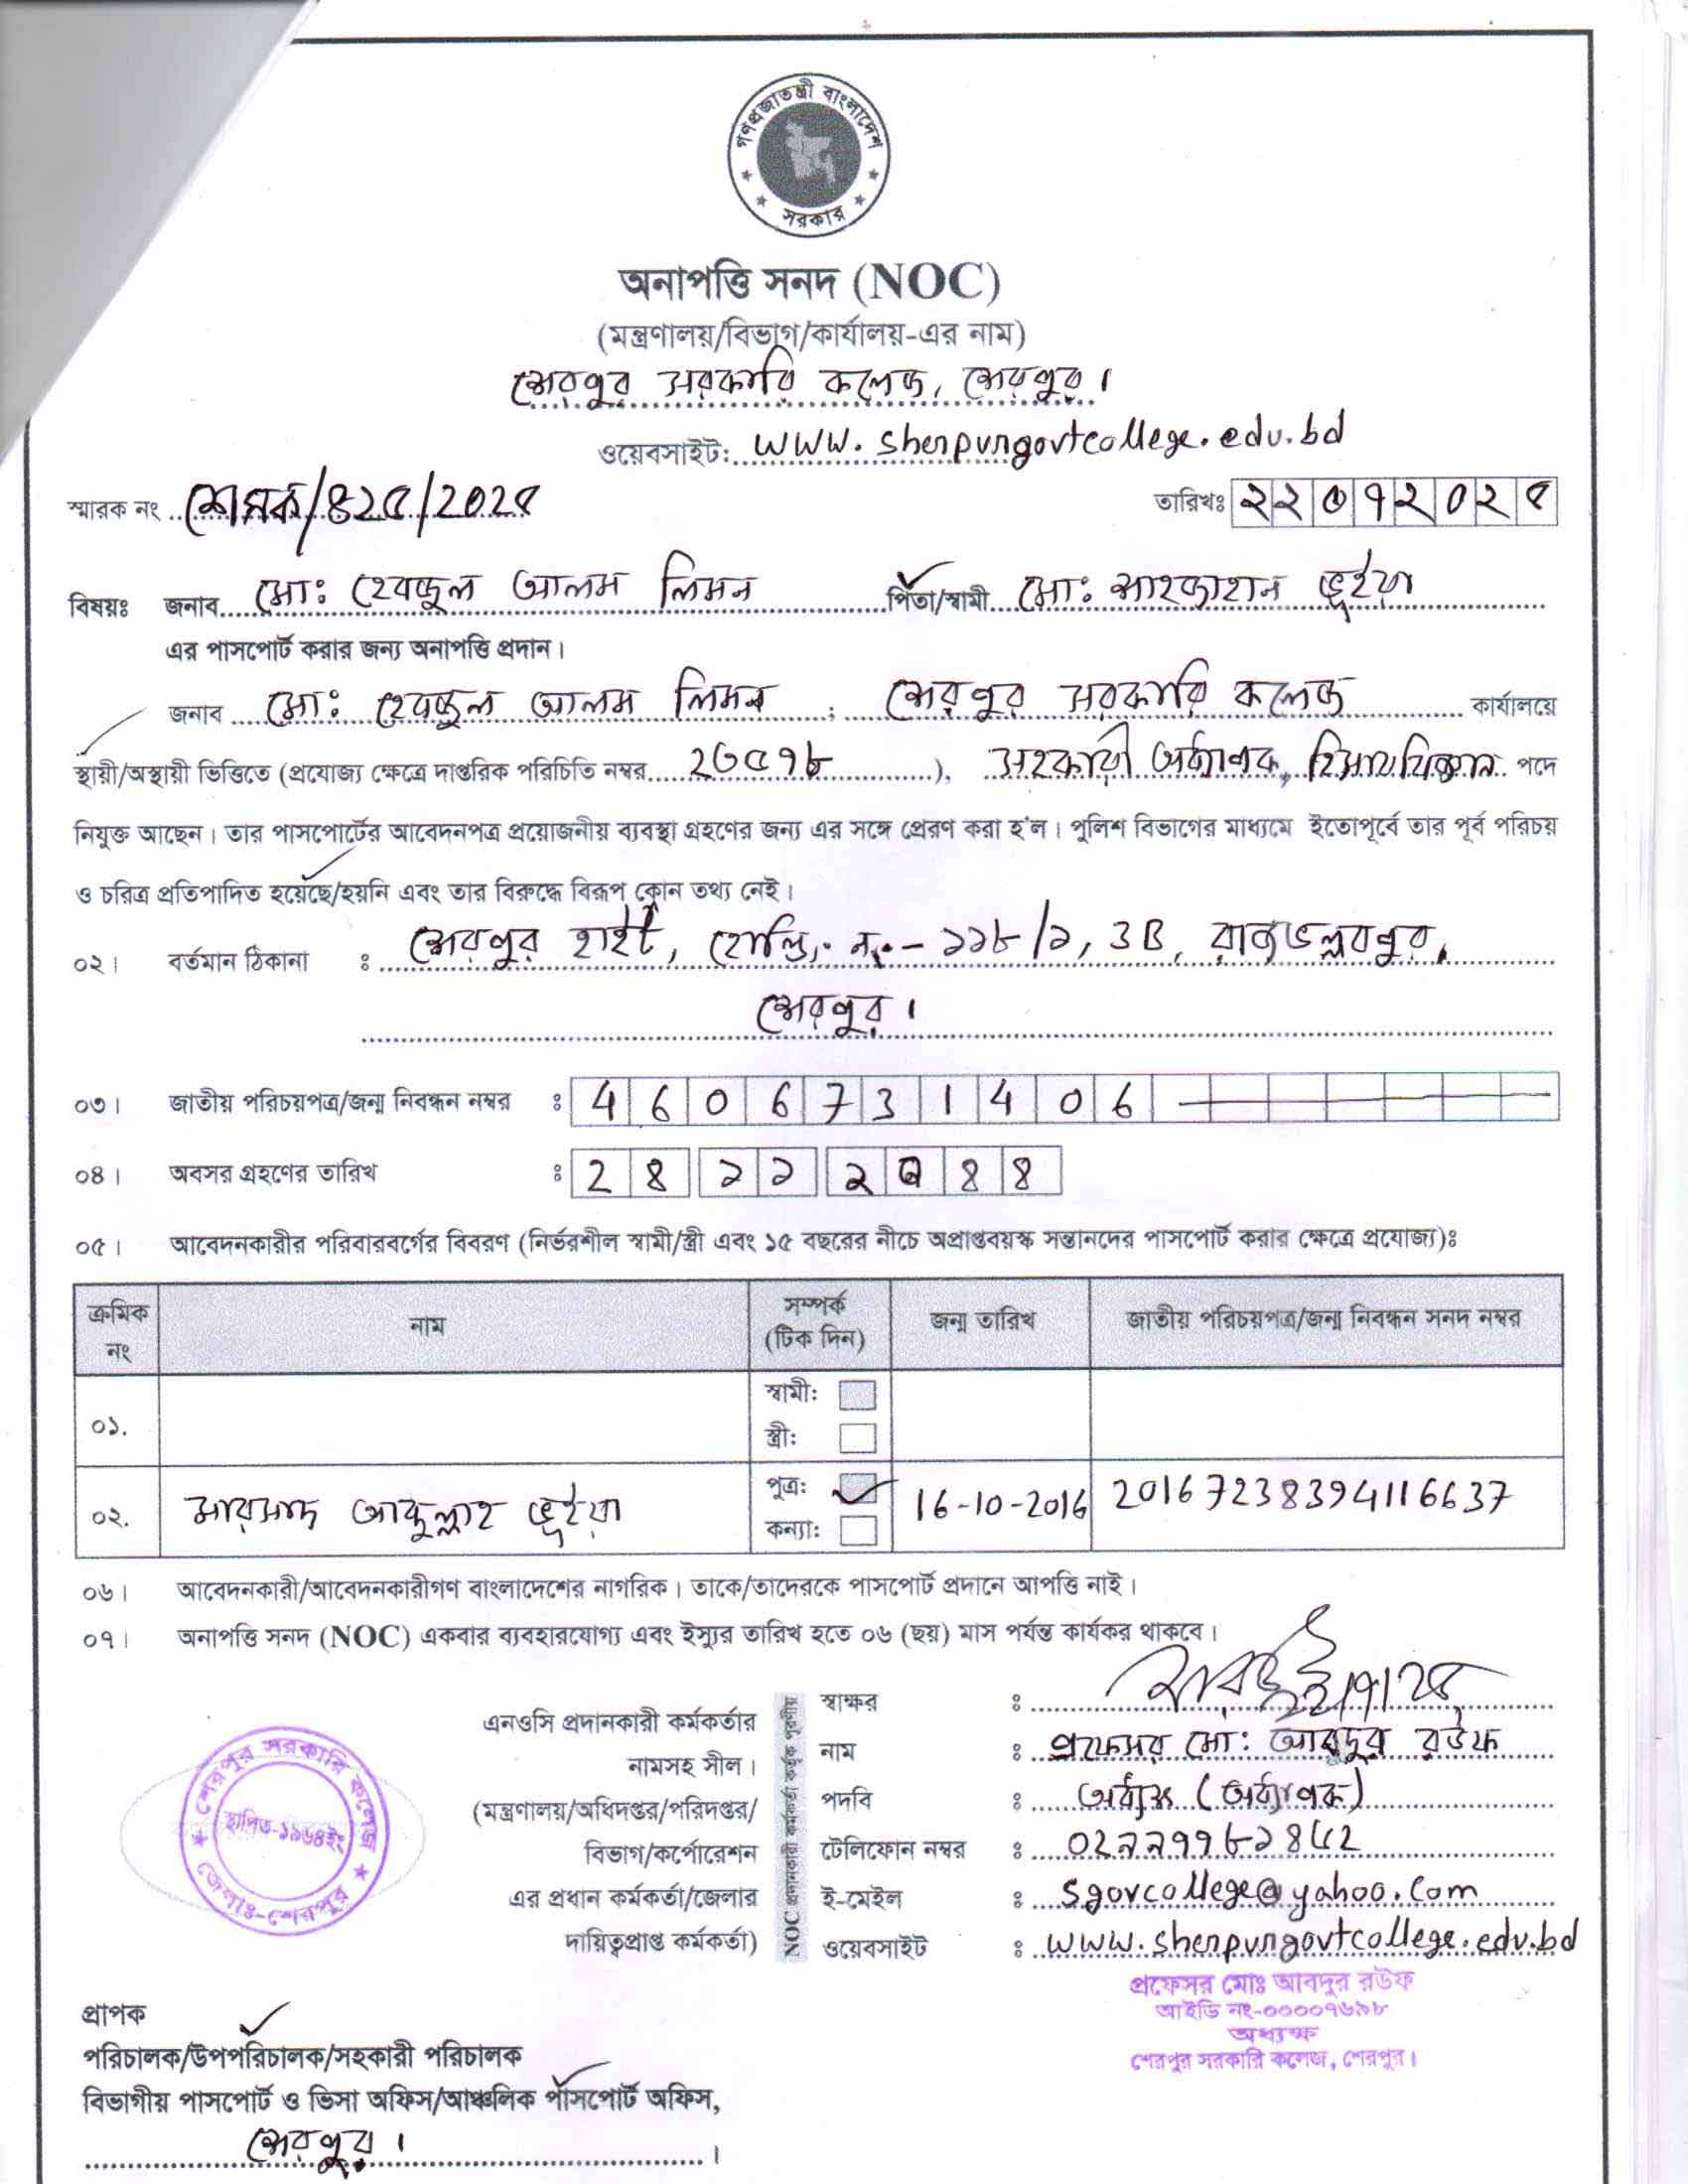 গণপ্রজাতন্ত্রী বাংলাদেশ
সরকার
অনাপত্তি সনদ (NOC)
(মন্ত্রণালয়/বিভাগ/কার্যালয়-এর নাম)
শেরপুর সরকারি কলেজ, শেরপুর।
ওয়েবসাইট: www.sherpurgovtcollege.edu.bd
স্মারক নং শেসক/৪২৫/2025
তারিখঃ ২২০৭২০২৫
বিষয়ঃ জনাব মোঃ হেবজুল আলম লিমন পিতা/স্বামী মোঃ শাহজাহান ভূইয়া
এর পাসপোর্ট করার জন্য অনাপত্তি প্রদান।
জনাব মোঃ হেবজুল আলম লিমন, শেরপুর সরকারি কলেজ কার্যালয়ে
স্থায়ী/অস্থায়ী ভিত্তিতে (প্রযোজ্য ক্ষেত্রে দাপ্তরিক পরিচিতি নম্বর ২৬৫৭৮), সহকারী অধ্যাপক, হিসাববিজ্ঞান পদে
নিযুক্ত আছেন। তার পাসপোর্টের আবেদনপত্র প্রয়োজনীয় ব্যবস্থা গ্রহণের জন্য এর সঙ্গে প্রেরণ করা হ'ল। পুলিশ বিভাগের মাধ্যমে ইতোপূর্বে তার পূর্ব পরিচয়
ও চরিত্র প্রতিপাদিত হয়েছে/হয়নি এবং তার বিরুদ্ধে বিরূপ কোন তথ্য নেই।
০২। বর্তমান ঠিকানা ঃ শেরপুর হাইট, হোল্ডি. নং- ১১৮/১, 3B, রাজভল্লবপুর,
শেরপুর।
০৩। জাতীয় পরিচয়পত্র/জন্ম নিবন্ধন নম্বর ঃ 4606731406
০৪। অবসর গ্রহণের তারিখ ঃ 2৪ ১১ ২০৪৪
০৫। আবেদনকারীর পরিবারবর্গের বিবরণ (নির্ভরশীল স্বামী/স্ত্রী এবং ১৫ বছরের নীচে অপ্রাপ্তবয়স্ক সন্তানদের পাসপোর্ট করার ক্ষেত্রে প্রযোজ্য)ঃ
ক্রমিক নং নাম সম্পর্ক (টিক দিন) জন্ম তারিখ জাতীয় পরিচয়পত্র/জন্ম নিবন্ধন সনদ নম্বর
০১. স্বামী:
স্ত্রী:
০২. আব্দুল্লাহ ভূইয়া পুত্র: 16-10-2016 20167238394116637
কন্যা:
০৬। আবেদনকারী/আবেদনকারীগণ বাংলাদেশের নাগরিক। তাকে/তাদেরকে পাসপোর্ট প্রদানে আপত্তি নাই।
০৭। অনাপত্তি সনদ (NOC) একবার ব্যবহারযোগ্য এবং ইস্যুর তারিখ হতে ০৬ (ছয়) মাস পর্যন্ত কার্যকর থাকবে।
শেরপুর সরকারি কলেজ
স্থাপিত-১৯৬৪ইং
জেলাঃ-শেরপুর
এনওসি প্রদানকারী কর্মকর্তার
নামসহ সীল।
(মন্ত্রণালয়/অধিদপ্তর/পরিদপ্তর/
বিভাগ/কর্পোরেশন
এর প্রধান কর্মকর্তা/জেলার
দায়িত্বপ্রাপ্ত কর্মকর্তা)
NOC প্রদানকারী কর্মকর্তা কর্তৃক পূরণীয়
স্বাক্ষর ঃ ২২/৭/২৫
নাম ঃ প্রফেসর মো: আবদুর রউফ
পদবি ঃ অধ্যক্ষ (অধ্যাপক)
টেলিফোন নম্বর ঃ 02৯৯৭৭৮১৪৫2
ই-মেইল ঃ sgovcollege@yahoo.com
ওয়েবসাইট ঃ www.sherpurgovtcollege.edu.bd
প্রফেসর মোঃ আবদুর রউফ
আইডি নং-০০০০৭৬৯৮
অধ্যক্ষ
শেরপুর সরকারি কলেজ, শেরপুর।
প্রাপক
পরিচালক/উপপরিচালক/সহকারী পরিচালক
বিভাগীয় পাসপোর্ট ও ভিসা অফিস/আঞ্চলিক পাসপোর্ট অফিস,
শেরপুর।